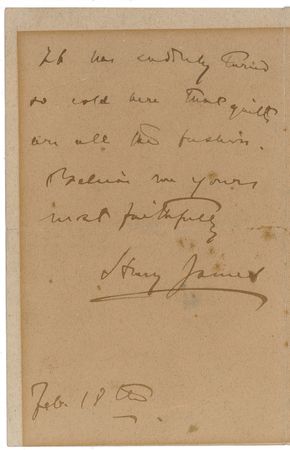 It has suddenly turned
so cold here that quilts
are all the fashion.
Believe me yours
most faithfully
Henry James
Feb. 18th